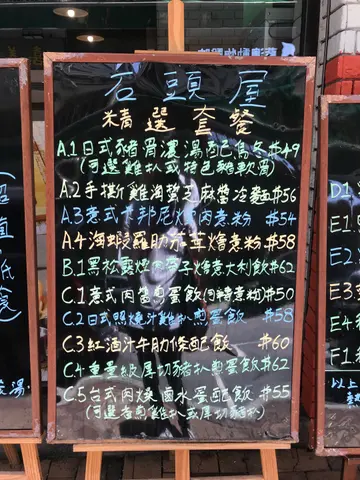 石頭屋
精選套餐
A.1 日式豬骨濃湯肥巴烏冬 #49
(可選雞扒或特色豬軟骨)
A.2 手撕雞海蜇芝麻醬冷麵 #56
A.3 意式卡邦尼煙肉煮粉 #54
A.4 海蝦羅勒茄茸燴煮粉 #58
B.1 黑松露煙肉帶子燴意大利飯 #62
C.1 意式肉醬煎蛋飯(可轉煮粉) #50
C.2 日式照燒汁雞扒煎蛋飯 #58
C.3 紅酒汁牛肋條配飯 #60
C.4 重量級厚切豬扒煎蛋飯 #62
C.5 台式肉燥鹵水蛋配飯 #55
(可選香煎雞扒或厚切豬扒)
D1
E1.
E2
E3
E4
以上